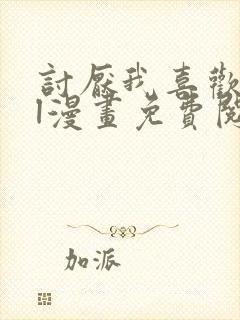 討厭我喜歡
l漫畫免費閱
加派